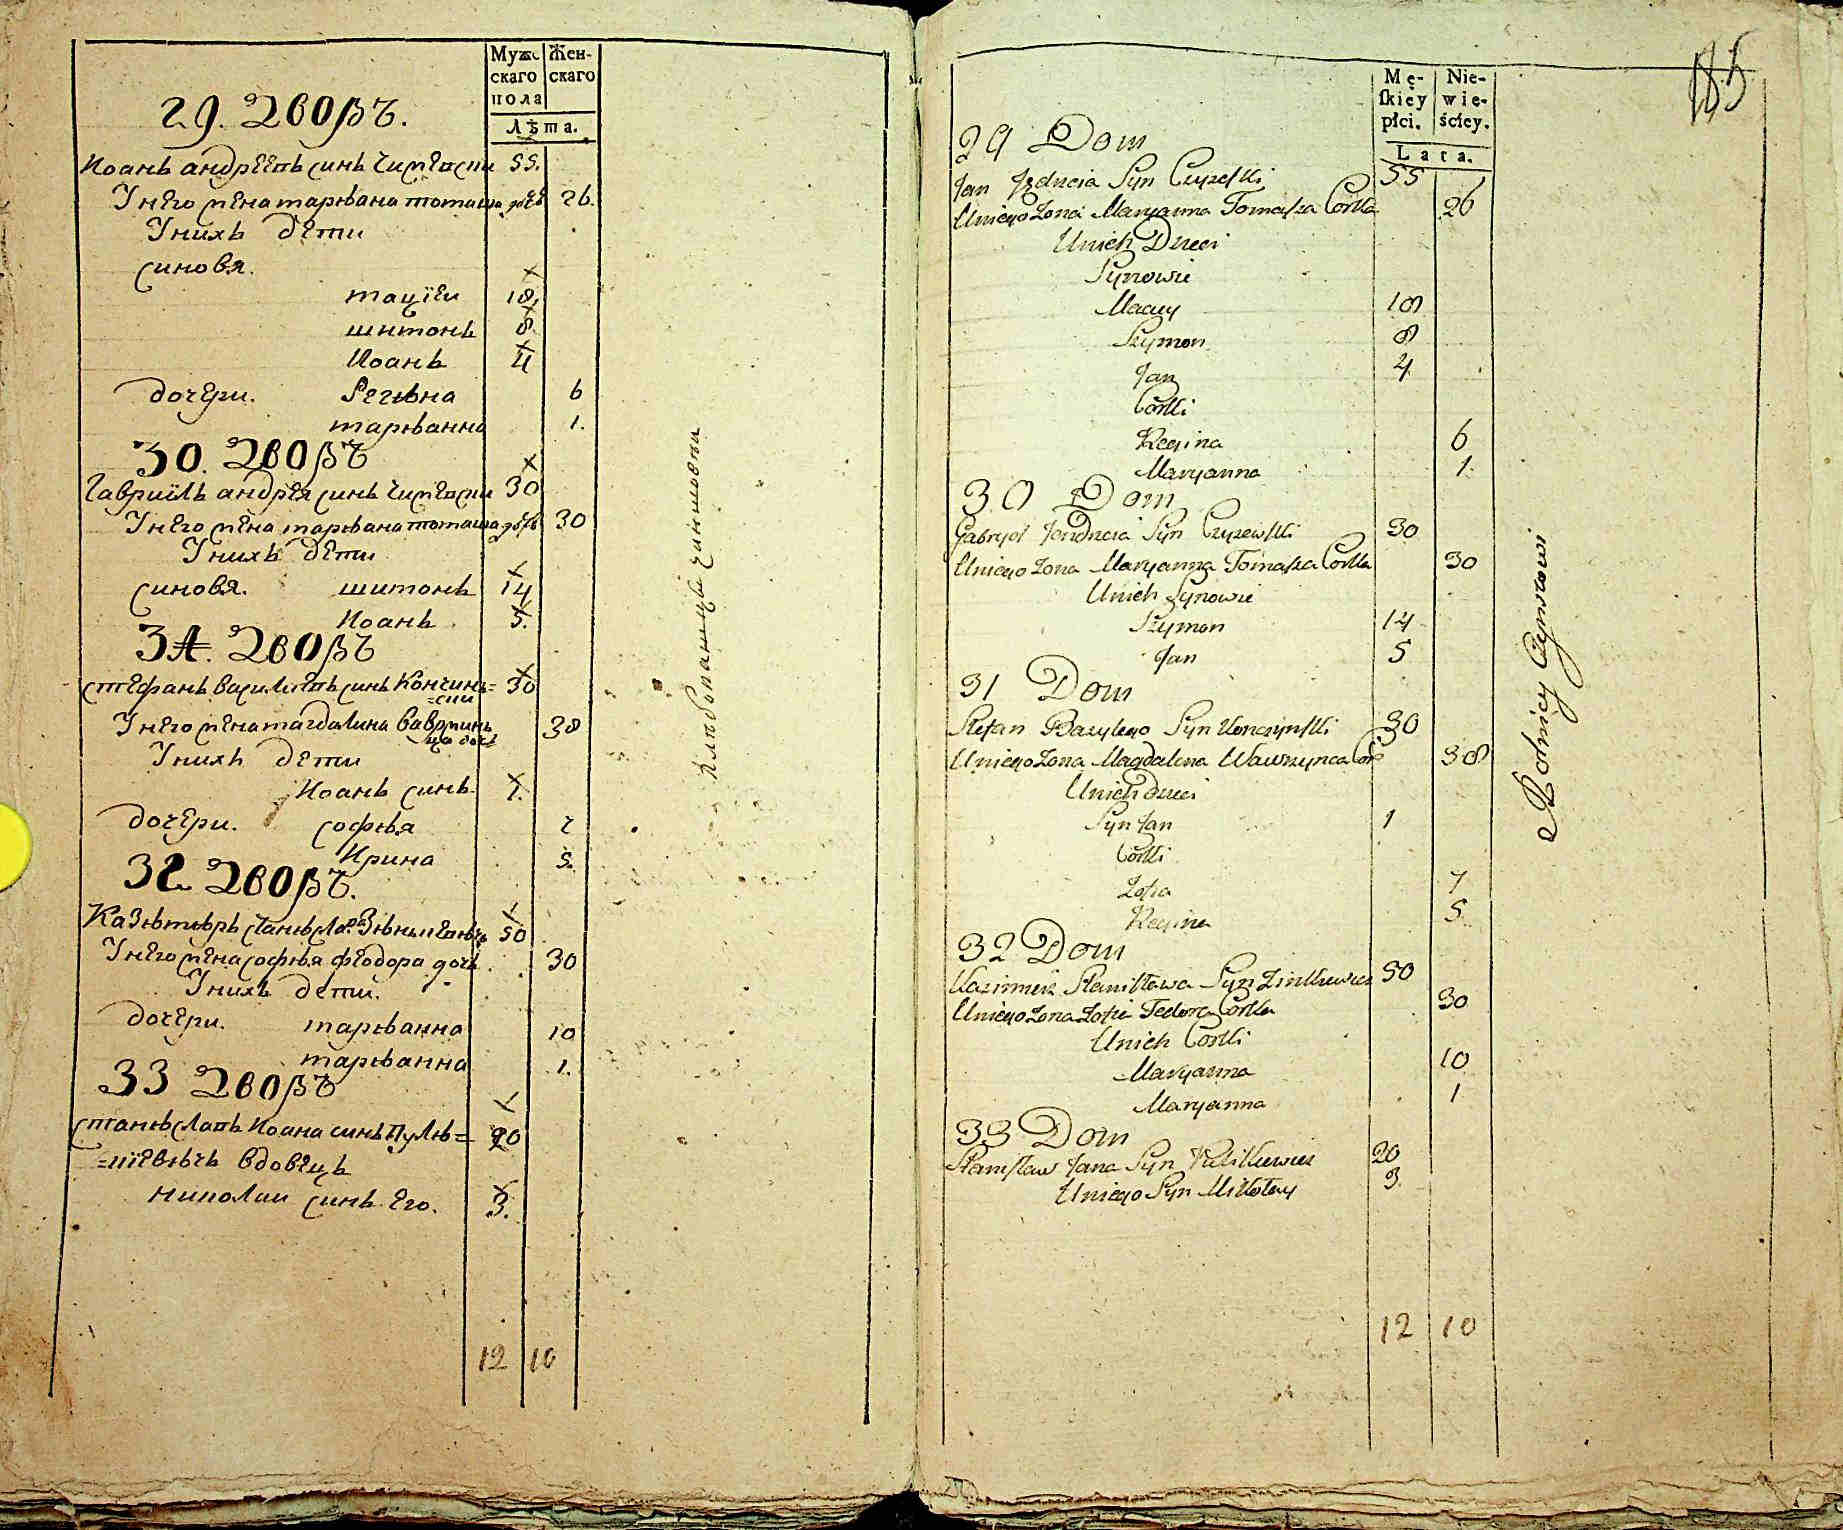 Мужс
скаго
пола
Жен-
скаго
Лѣта.
29. Дворъ.
Иоанъ андрѣевъ синъ чижевски 55.
У него жена маріанна томаша дочь 26.
У нихъ дети
синовя.
мацїеи 18.
шимонъ 8.
Иоанъ 4
дочери. Регина 6
маріанна 1.
30. Дворъ
Гавриїлъ андрея синъ чижевски 30
У него жена маріанна томаша дочь 30
У нихъ дети
синовя. шимонъ 14
Иоанъ 5.
31. Дворъ
стефанъ василиевъ синъ Кончинь=
=ски 30
У него жена магдалина вавринь
ца дочь 38
У нихъ дети
Иоанъ синъ. 1.
дочери. софія 7
Ирина 5.
32. Дворъ.
Казиміръ станислава Зинкевичъ 50
У него жена софія феодора дочь 30
У нихъ дети.
дочери. маріанна 10
маріанна 1.
33 Дворъ
станиславъ Иоана синъ Пули=
=кїевичъ вдовецъ 20
николаи синъ его. 3.
12 10
хлѣбопашци чиншовни
185
Mę-
ſkiey
płci.
Nie-
wie-
ściey.
Lata.
29 Dom
Jan Jędrzeia Syn Czyzeſki 55
Uniego Zona Maryanna Tomaſza Corka 26
Unich Dzieci
Synowie
Maciey 18
Szymon 8
Jan 4
Corki
Regina 6
Maryanna 1.
30 Dom
Gabryel Jendrzeia Syn Czyzewſki 30
Uniego Zona Maryanna Tomaſza Corka 30
Unich Synowie
Szymon 14
Jan 5
31 Dom
Stefan Bazylego Syn Konczynſki 30
Uniego Zona Magdalena Wawrzynca Cor 38
Unich dzieci
Syn Jan 1
Corki
Zofia 7
Regina 5
32 Dom
Kazimierz Staniſława Syn Zinkiewicz 50
Uniego Zona Zofia Fedora Corka 30
Unich Corki
Maryanna 10
Maryanna 1
33 Dom
Staniſław Jana Syn Pulikiewicz 20
Uniego Syn Mikołay 3.
12 10
Rolnicy Czynszowi